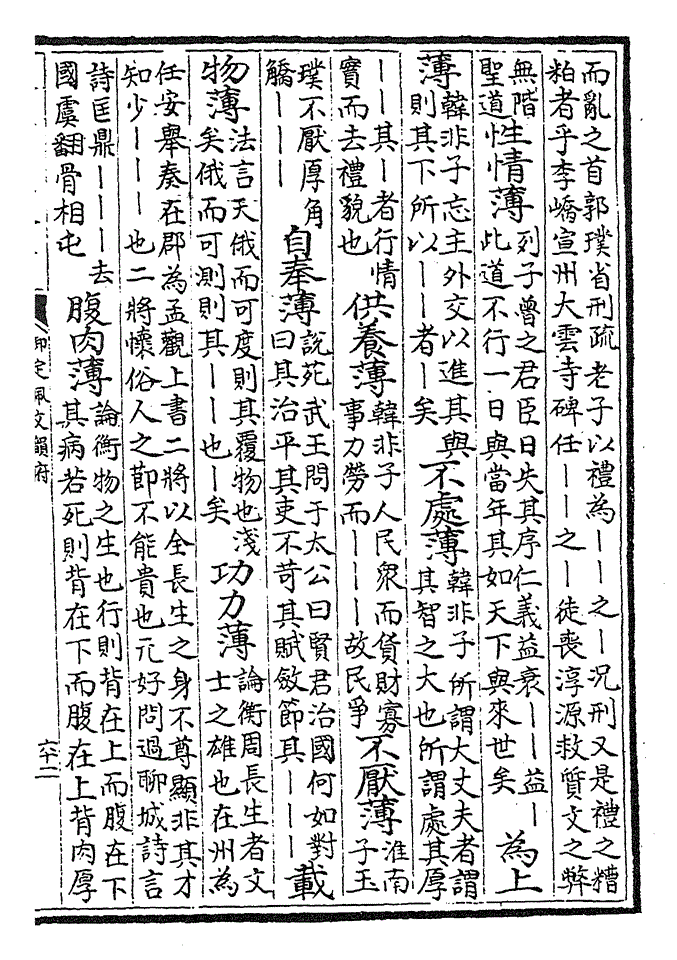 而亂之首郭璞省刑疏老子以禮為——之—况刑又是禮之糟
粕者乎李嶠宣州大雲寺碑任——之—徒喪淳源救質文之弊
無階
聖道
性情薄
列子魯之君臣日失其序仁義益衰——益—
此道不行一日與當年其如天下與來世矣
為上
薄
韓非子忘主外交以進其與
則其下所以——者—矣
不處薄
韓非子所謂大丈夫者謂
其智之大也所謂處其厚
——其—者行情
實而去禮貌也
供養薄
韓非子人民衆而貨財寡
事力勞而———故民爭
不厭薄
淮南
子玉
璞不厭厚角
觿———
自奉薄
說苑武王問于太公曰賢君治國何如對
曰其治平其吏不苛其賦斂節其———
載
物薄
法言天俄而可度則其覆物也淺
矣俄而可測則其——也—矣
功力薄
論衡周長生者文
士之雄也在州為
任安舉奏在郡為孟觀上書二將以全長生之身不尊顯非其才
知少———也二將懷俗人之節不能貴也元好問過聊城詩言
詩匡鼎———去
國虞翻骨相屯
腹肉薄
論衡物之生也行則背在上而腹在下
其病若死則背在下而腹在上背肉厚
御定佩文韻府
六十二